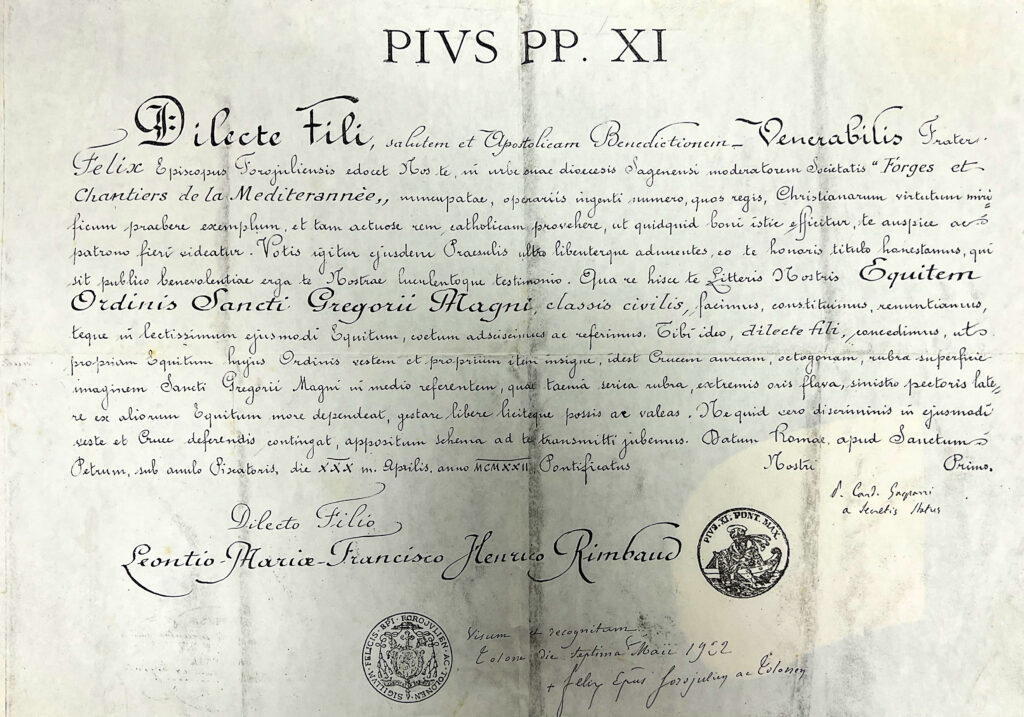 PIVS PP. XI
Dilecte Fili, salutem et Apostolicam Benedictionem_ Venerabilis Frater
Felix Episcopus Forojuliensis edocet Nos te, in urbe suae dioecesis Sagenensi moderatorem Societatis "Forges et
Chantiers de la Mediterannée,, nuncupatae, operariis ingenti numero, quos regis, Christianarum virtutum miri=
ficum praebere exemplum, et tam actuose rem catholicam provehere, ut quidquid boni istic efficitur, te auspice ac
patrono fieri videatur. Votis igitur ejusdem Praesulis ultro libenterque adnuentes, eo te honoris titulo honestamus, qui
sit publico benevolentiae erga te Nostrae luculentoque testimonio. Qua re hisce te Litteris Nostris Equitem
Ordinis Sancti Gregorii Magni, classis civilis, facimus, constituimus, renuntiamus,
teque in lectissimum ejusmodi Equitum, coetum adsciscimus ac referimus. Tibi ideo, dilecte fili, concedimus, ut
propriam Equitum hujus Ordinis vestem et proprium item insigne, idest Crucem auream, octogonam, rubra superficie
imaginem Sancti Gregorii Magni in medio referentem, quae taenia serica rubra, extremis oris flava, sinistro pectoris late=
re ex aliorum Equitum more dependeat, gestare libere liciteque possis ac valeas. Ne quid vero discriminis in ejusmodi
veste et Cruce deferendis contingat, appositum schema ad te transmitti jubemus. Datum Romae, apud Sanctum
Petrum, sub anulo Piscatoris, die XXX m. Aprilis, anno MCMXXII, Pontificatus Nostri Primo.
P. Card. Gasparri
a Secretis Status
Dilecto Filio
Leontio-Mariae-Francisco Henrico Rimbaud
PIVS. XI. PONT. MAX.
SIGILLVM FELICIS EPI FOROJVLIEN. AC TOLONEN.
Visum et recognitum
Tolone die septima Maii 1922
+ Felix Epus Forojulien ac Tolonen